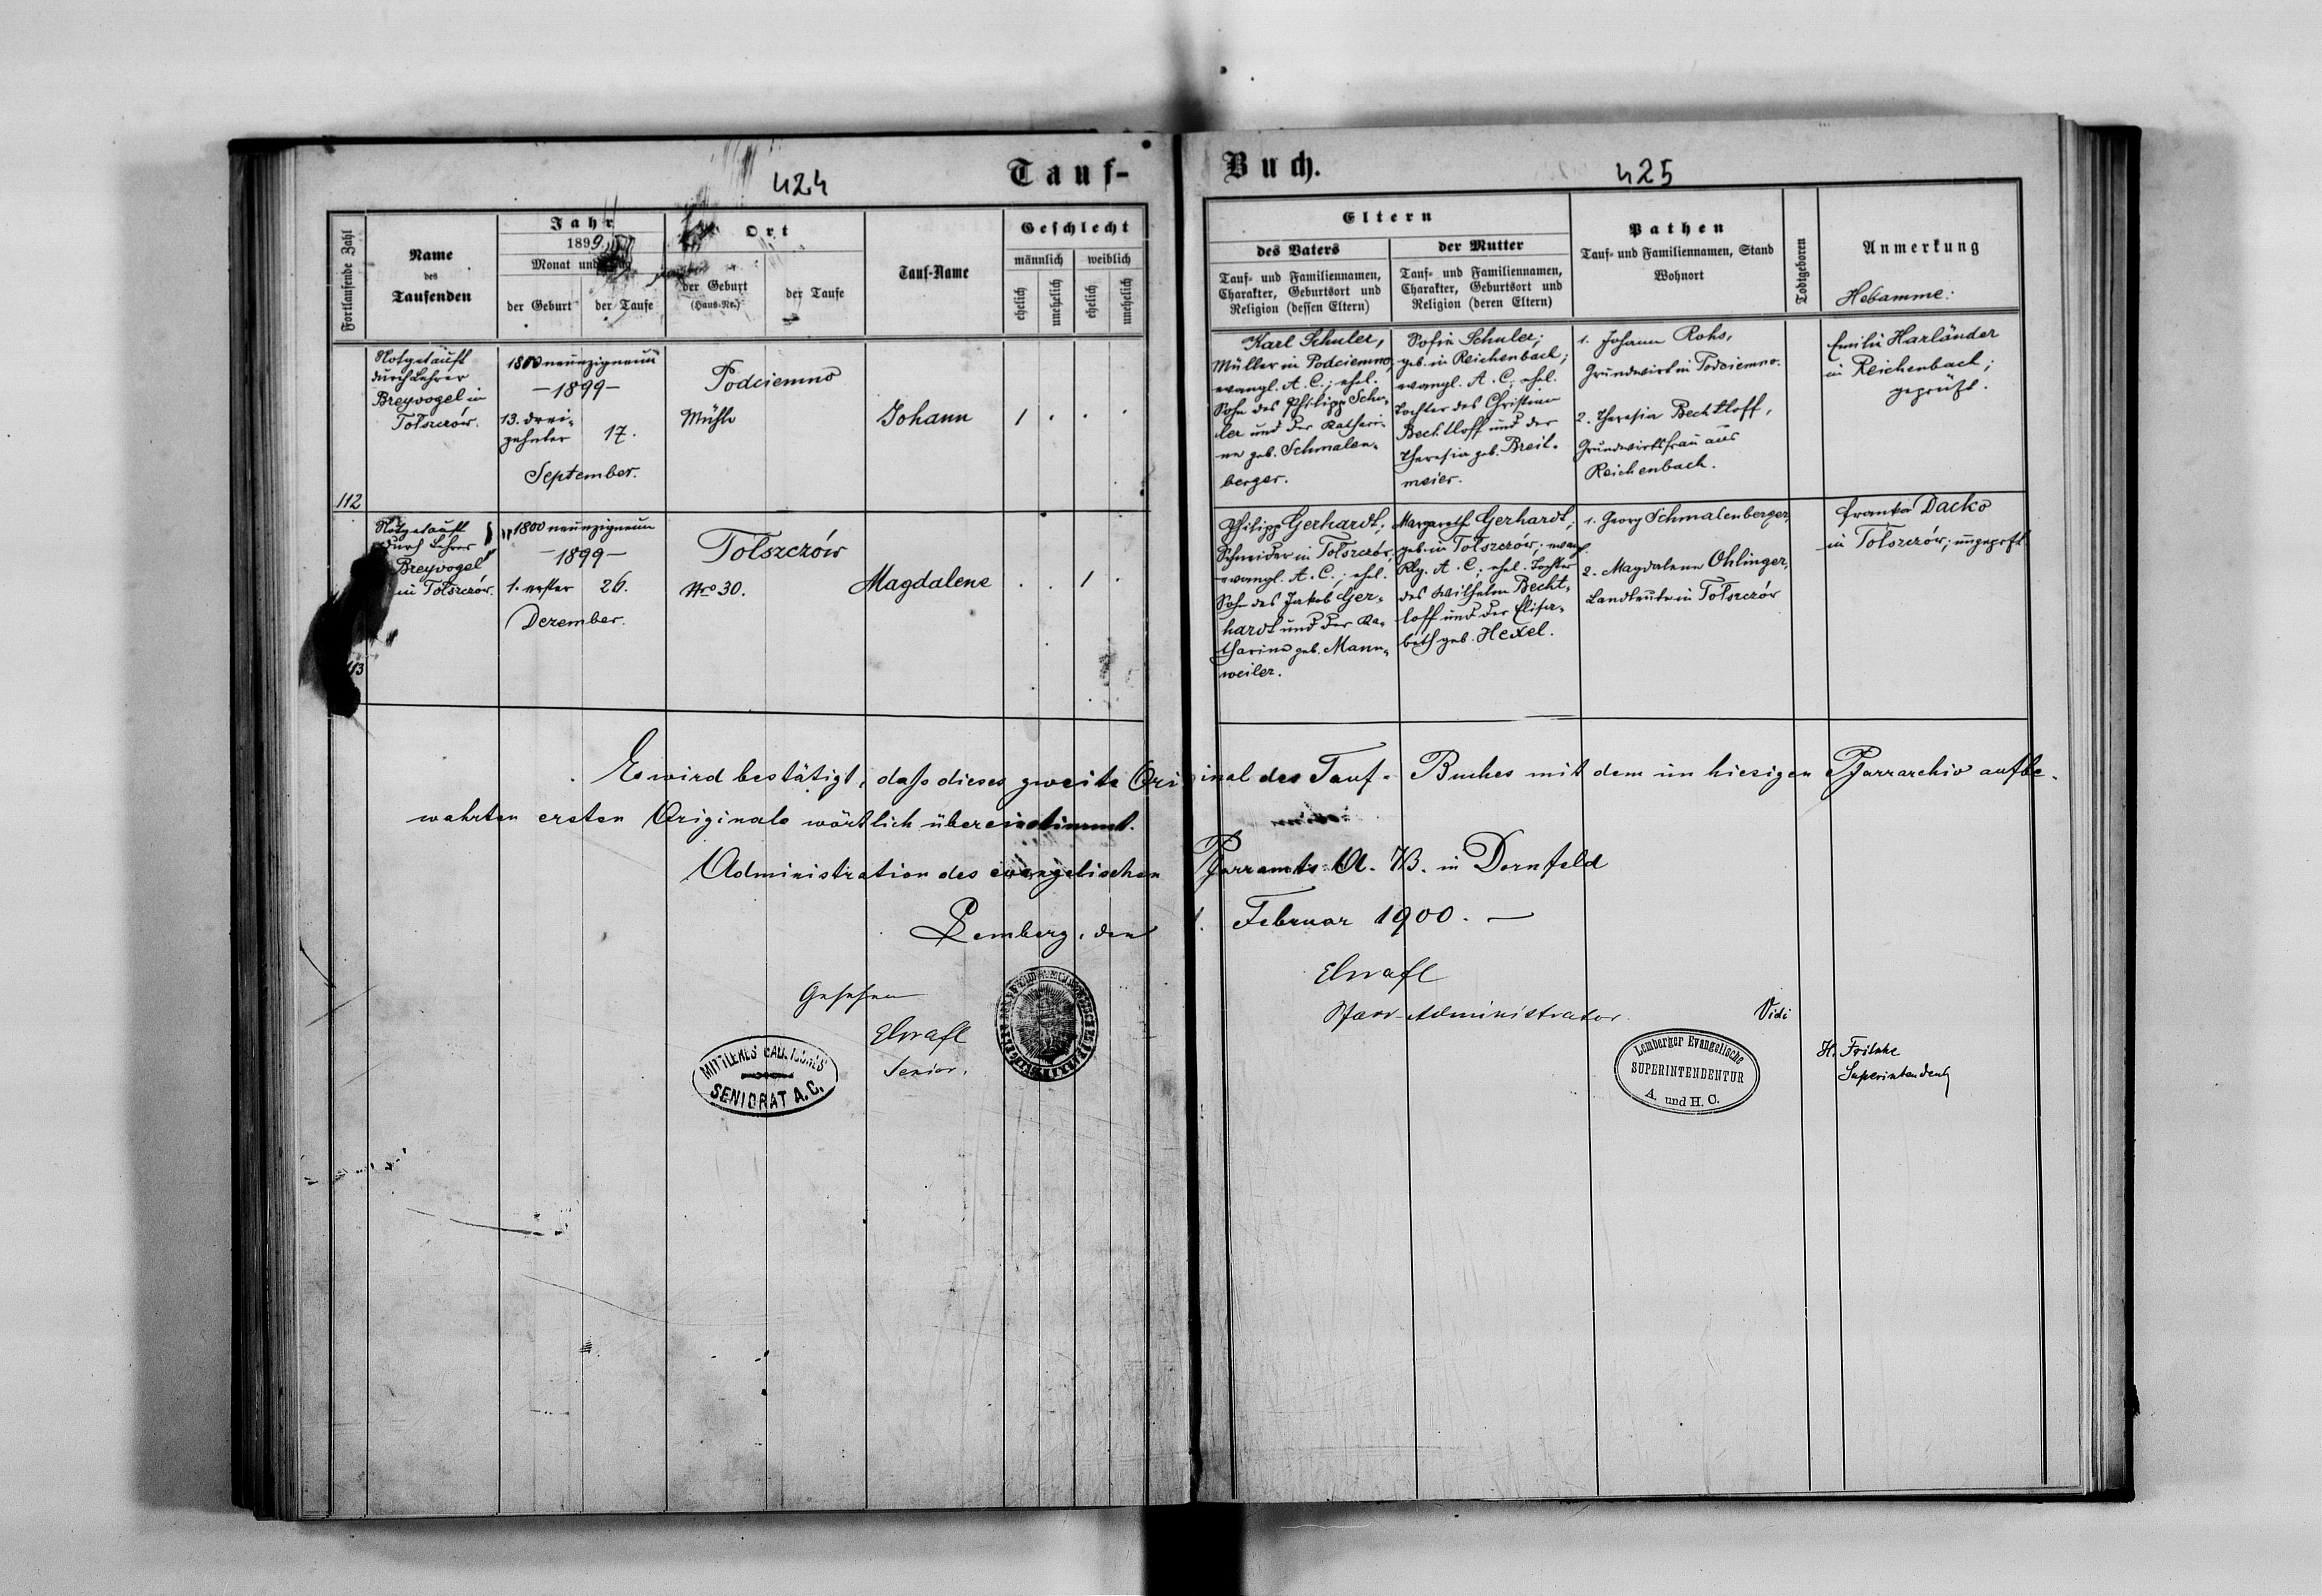 424
Tauf-
Buch.
425
Fortlaufende Zahl
Name
des
Taufenden
Jahr
1899
Monat und
der Geburt
der Taufe
Ort
der Geburt
(Haus-Nr.)
der Taufe
Tauf-Name
Geschlecht
männlich
weiblich
ehelich
unehelich
ehelich
unehelich
Eltern
des Vaters
Tauf- und Familiennamen,
Charakter, Geburtsort und
Religion (dessen Eltern)
der Mutter
Tauf- und Familiennamen,
Charakter, Geburtsort und
Religion (deren Eltern)
Pathen
Tauf- und Familiennamen, Stand
Wohnort
Todtgeboren
Anmerkung
Hebamme:
112
Notgetauft
durch Lehrer
Breyvogel in
Tołszczów.
1800 neunzigneun
—1899—
13. drei-
zehnter
17.
September.
Podciemno
Mühle
Johann
1 . . .
Karl Schuler,
Müller in Podciemno,
evangl. A. C.; ehel.
Sohn des Philipp Schu-
ler und der Kathari-
na geb. Schmalen-
berger.
Sofia Schuler;
geb. in Reichenbach;
evangl. A. C., ehel.
Tochter des Christian
Bechtloff und der
Theresia geb. Breit-
meier.
1. Johann Rohs,
Grundwirt in Podciemno.
2. Theresia Bechtloff,
Grundwirtsfrau aus
Reichenbach.
Emilie Harländer
in Reichenbach;
geprüft.
113
Notgetauft
durch Lehrer
Breyvogel
in Tołszczów.
1800 neunzigneun
—1899—
1. erster
26.
Dezember.
Tołszczów
Nro 30.
Magdalene
. . 1 .
Philipp Gerhardt;
Schneider in Tołszczów;
evangl. A. C.; ehel.
Sohn des Jakob Ger-
hardt und der Ka-
tharina geb. Mann-
weiler.
Margareth Gerhardt;
geb. in Tołszczów; evang.
Rlg. A. C; ehel. Tochter
des Wilhelm Becht-
loff und der Elisa-
beth geb. Hexel.
1. Georg Schmalenberger,
2. Magdalena Ohlinger,
Landleute in Tołszczów
Franka Dacko
in Tołszczów; ungeprft
Es wird bestätigt, dass dieses zweite Original des Tauf-Buches mit dem im hiesigen Pfarrarchiv aufbe-
wahrten ersten Originale wörtlich übereinstimmt.
Administration des evangelischen Pfarramts A. B. in Dornfeld
Lemberg, den 1. Februar 1900. —
Gesehen
Senior.
MITTLERES GALIZISCHES
SENIORAT A.C.
Pfarr-Administrator.
Vidi
Lemberger Evangelische
SUPERINTENDENTUR
A. und H. C.
H. Fritsche
Superintendent